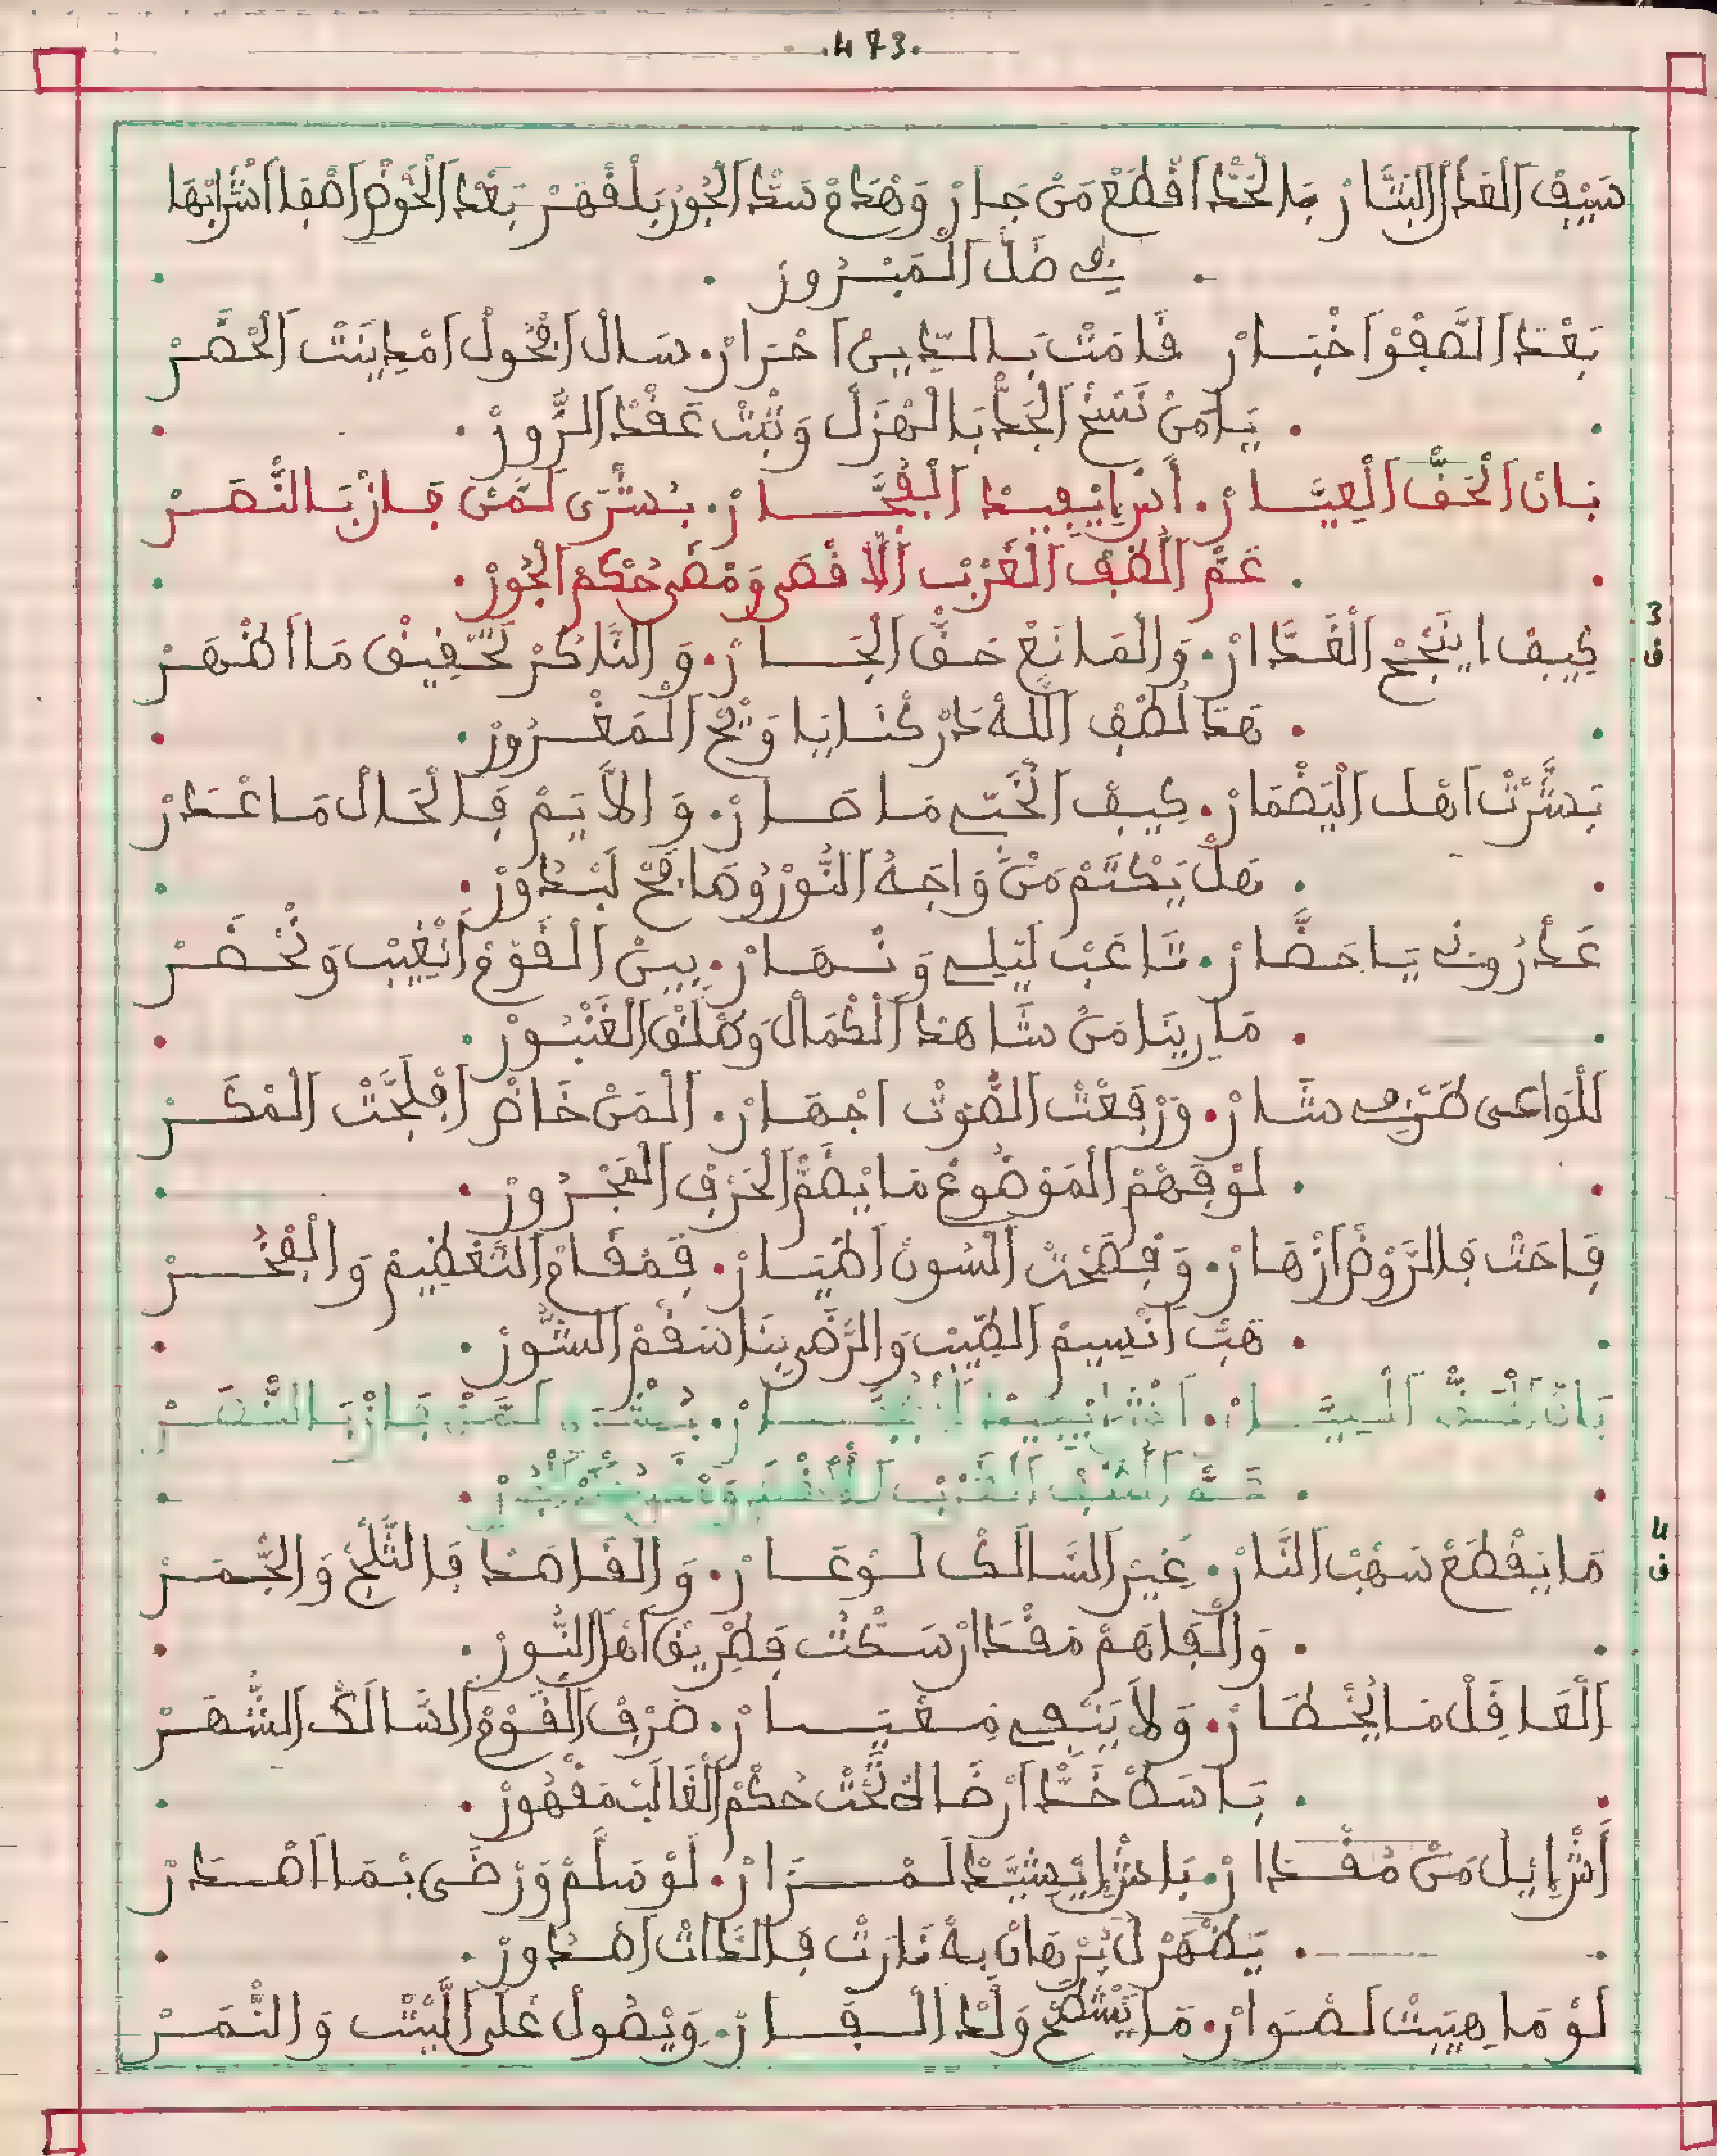 .473.
سَيْف الْعَدْل الْبَتَّارْ بَالْحَدّْ اقْطَعْ مَنْ جَارْ وَهْدَمْ سَدّْ الْجُورْ بَلْقْهَرْ بَعْدْ الْخَوْضْ اصْفَا اشْرَابْهَا
فِي ضَلّْ الْمَبْرُورْ
بَعْدْ الصَّفْوْ اخْبَارْ فَامَتْ بَالدِّينْ احْرَارْ. سَالْ افْحُولْ امْدِينَتْ الْحْضَرْ
. يَا مَنْ نَسْخْ الْجَدّْ بَالْهْزَلْ وَثْبَتْ عَقْدْ الزُّورْ .
بَانْ الْحَقّْ الْعِيَّارْ. أَشْ ايْفِيدْ الْفُجَّارْ. بُشْرَى لَمَّنْ فَازْ بَالنّْصَرْ
. عَمّْ الُّطْفْ الْغَرْبْ الَاقْصَى وَمْضَى حُكْمْ الْجُورْ .
3
ف
كِيفْ ايْنْجَحْ الْغَدَّارْ. وَالْمَانَعْ حَقّْ الْجَارْ. وَالنَّاكُرْ تَحْقِيقْ مَا اظْهَرْ
. هَدَا لُطْفْ اللَّهْ دَرْكْنَا يَا وَيْحْ الْمَغْرُورْ .
بَشَّرْتْ اهْل الْيَضْمَارْ. كِيفْ الْخَبِّي مَا صَارْ. وَالَايَمْ فَالْحَالْ مَا عْدَرْ
. هَلْ يَكْتَمْ مَنْ وَاجَهْ النُّورْ وُهَا فَجّْ لَبْدُورْ .
عَدْرُونِي يَا حَضَّارْ. تَاعَبْ لَيْلِي وَنْهَارْ. بِينْ الْقَوْمْ انْغِيبْ وَنَحْضَرْ
. مَا رِينَا مَنْ شَاهَدْ الْكْمَالْ وَطْلَقْ الْغَنْبُورْ .
لَلْوَاعِي طَرْفِي شَارْ. وَرْفَعْتْ الصُّوتْ اجْهَارْ. الْمَنْ خَاضْ افْلَجَّتْ الْمْكَرْ
. لَوْ فْهَمْ الْمَوْضُوعْ مَا يْضَمّْ الْحَرْفْ الْمَجْرُورْ .
فَاحَتْ فَالرَّوْضْ ازْهَارْ. وَفْصَحْتْ الْسُونْ اطْيَارْ. فَمْقَامْ التَّعْظِيمْ وَالْفْخَرْ
. هَبّْ انْسِيمْ الطِّيبْ وَالرّْضَى بِنَا سَقْمْ الشُّورْ .
بَانْ الْحَقّْ الْعِيَّارْ. اَشْ ايْفِيدْ الْفُجَّارْ. بُشْرَى لَمَّنْ فَازْ بَالنّْصَرْ
. عَمّْ الُّطْفْ الْغَرْبْ الَاقْصَى وَمْضَى حُكْمْ الْجُورْ .
4
ف
مَا يَقْطَعْ سَهْبْ النَّارْ. غِيرْ السَّالَكْ لَوْعَارْ. وَالْقَاصَدْ فَالثَّلْجْ وَالْجّْمَرْ
. وَالْفَاهَمْ مَقْدَارْ سَكْتْ فَطْرِيقْ اهْلْ النُّورْ .
الْغَافَلْ مَا يُخْطَارْ. وَلَا يَنْبِي مِعْيَارْ. صَرْفْ الْقَوْمْ السَّالَكْ الشّْهَرْ
. بَاسَطْ خَدّْ ارْضَاكْ تَحْتْ حُكْمْ الْغَالَبْ مَقْهُورْ .
أَشْ ايْلْ مَنْ مُقْدَارْ. بَاشْ ايْشَيَّدْ لَمْزَارْ. لَوْ سَلَّمْ وَرْضَى بْمَا اصْدَرْ
. يَظْهَرْلُ بُرْهَانْ بِهْ نَارَتْ فَالدَّاتْ اصْدُورْ .
لَوْ مَا هِيبَتْ لَصْوَارْ. مَا يَشْطَحْ وَلْدْ الْفَارْ. وَيْصُولْ عْلَى الَّيْتْ وَالنّْمَرْ